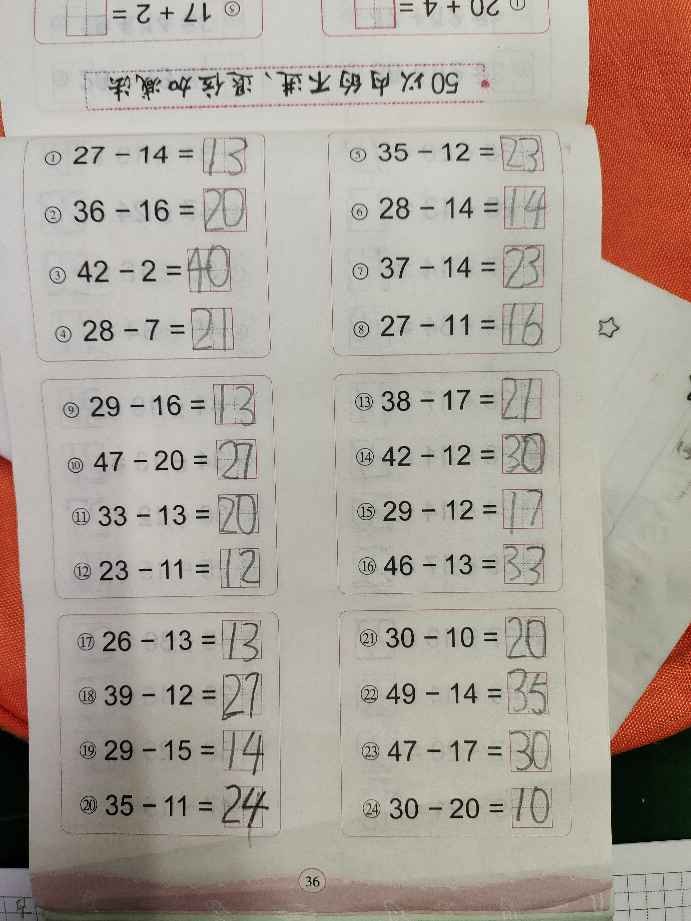 ⑤ 17 + 2 =
① 20 + 4 =
50以内的不进、退位加减法
① 27 − 14 = 13
② 36 − 16 = 20
③ 42 − 2 = 40
④ 28 − 7 = 21
⑤ 35 − 12 = 23
⑥ 28 − 14 = 14
⑦ 37 − 14 = 23
⑧ 27 − 11 = 16
⑨ 29 − 16 = 13
⑩ 47 − 20 = 27
⑪ 33 − 13 = 20
⑫ 23 − 11 = 12
⑬ 38 − 17 = 21
⑭ 42 − 12 = 30
⑮ 29 − 12 = 17
⑯ 46 − 13 = 33
⑰ 26 − 13 = 13
⑱ 39 − 12 = 27
⑲ 29 − 15 = 14
⑳ 35 − 11 = 24
㉑ 30 − 10 = 20
㉒ 49 − 14 = 35
㉓ 47 − 17 = 30
㉔ 30 − 20 = 10
36